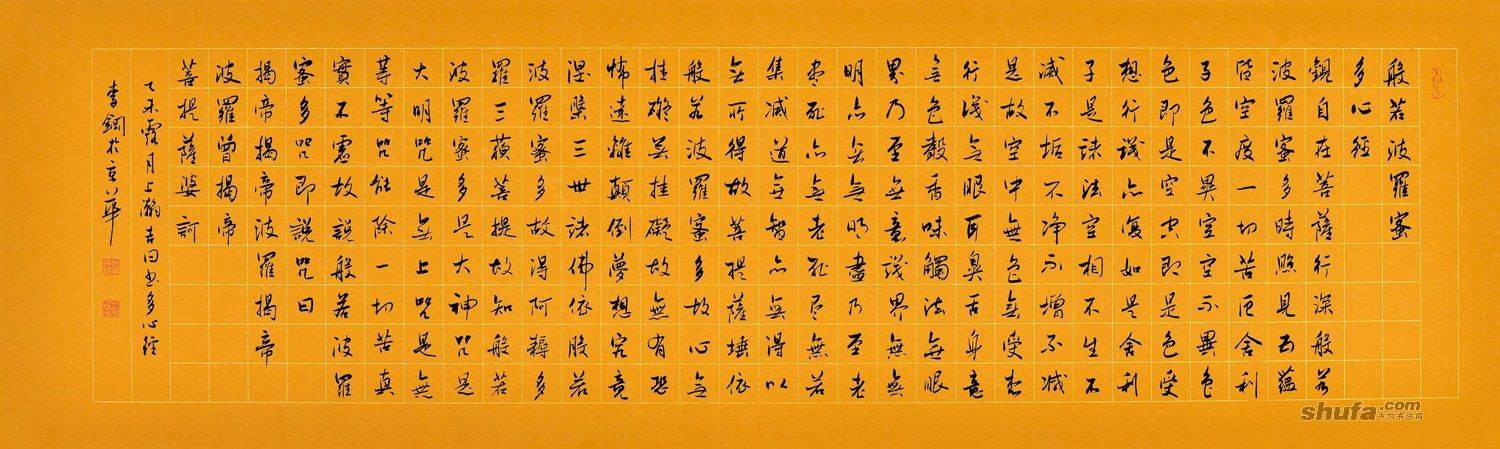 般若波羅蜜
多心經
觀自在菩薩行深般若
波羅蜜多時照見五蘊
皆空度一切苦厄舍利
子色不異空空不異色
色即是空空即是色受
想行識亦復如是舍利
子是諸法空相不生不
滅不垢不净不增不減
是故空中無色無受想
行識無眼耳鼻舌身意
無色聲香味觸法無眼
界乃至無意識界無無
明亦無無明盡乃至老
死亦無老死盡無苦
集滅道無智亦無得以
無所得故菩提薩埵依
般若波羅蜜多故心無
挂礙無挂礙故無有恐
怖遠離顛倒夢想究竟
涅槃三世諸佛依般若
波羅蜜多故得阿耨多
羅三藐菩提故知般若
波羅蜜多是大神咒是
大明咒是無上咒是無
等等咒能除一切苦真
實不虛故說般若波羅
蜜多咒即說咒曰
揭帝揭帝波羅揭帝
波羅曾揭帝
菩提薩婆訶
乙未霞月上瀚吉日書多心經
李鋼於京華
shufa.com